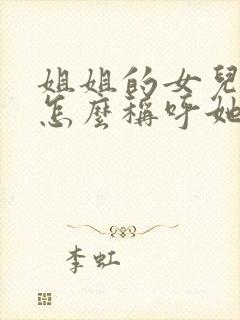 姐姐的女兒
怎麼稱呼她
李虹